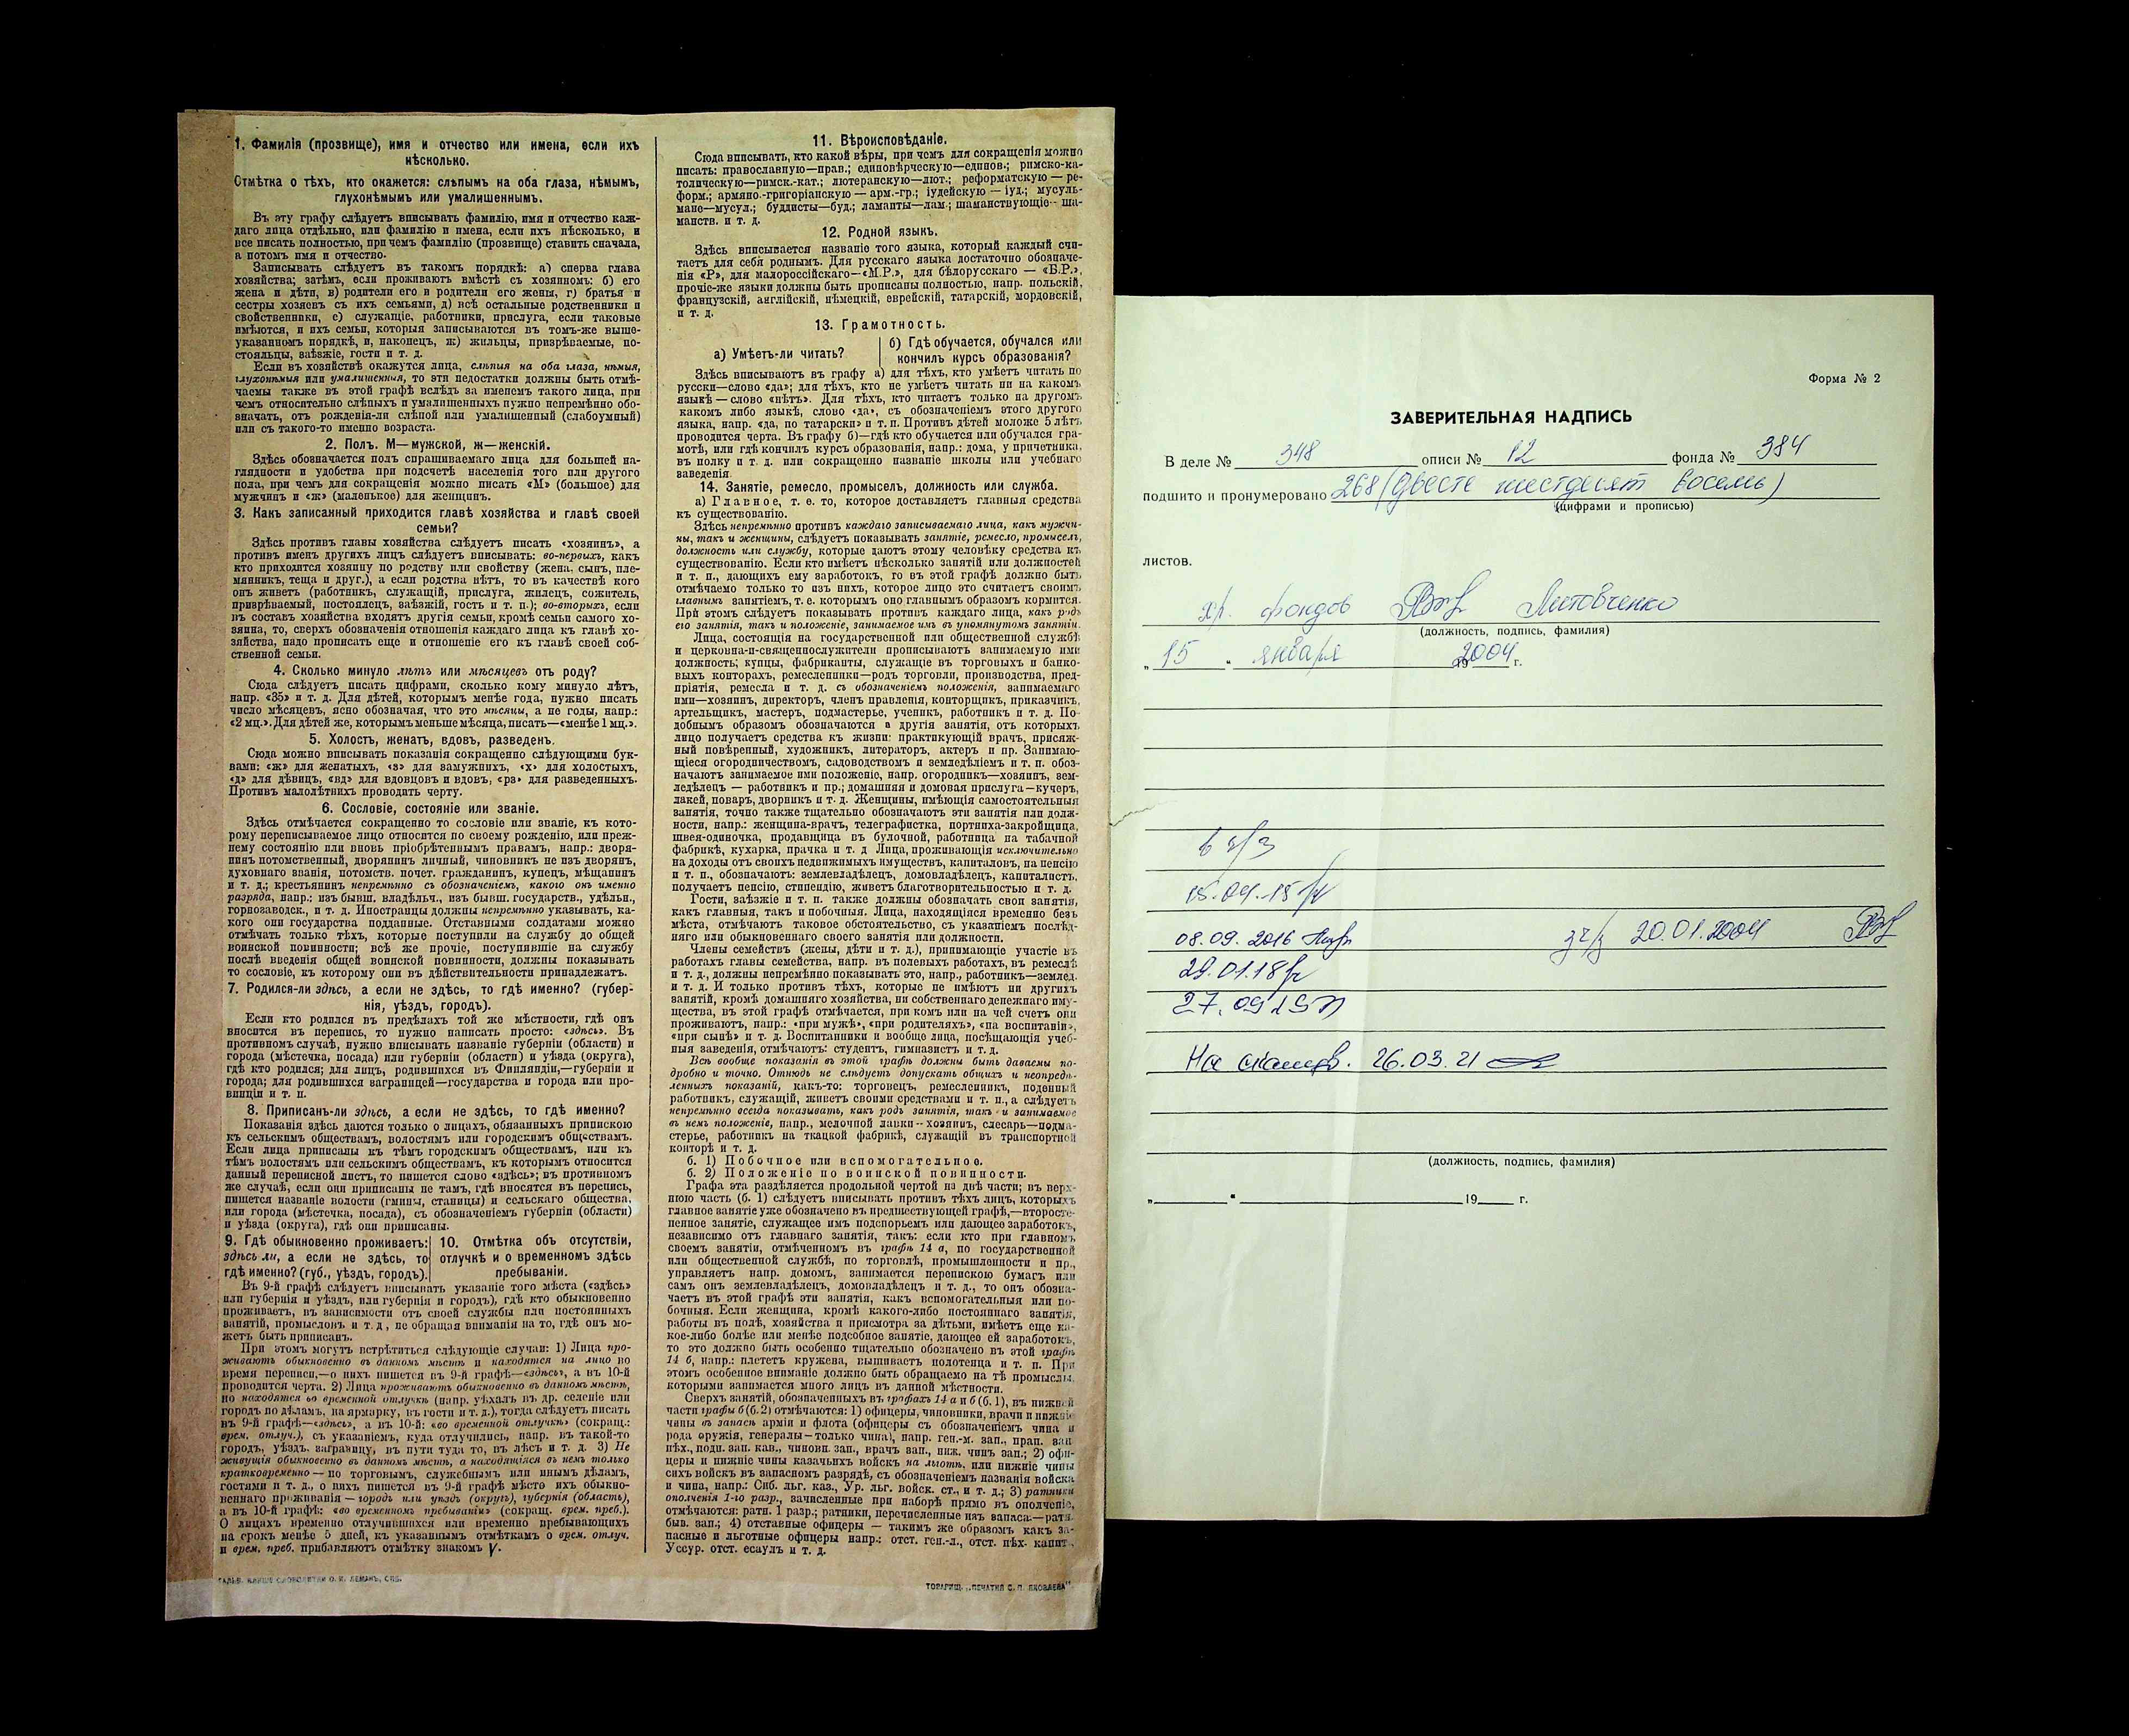 1. Фамилія (прозвище), имя и отчество или имена, если ихъ
нѣсколько.
Отмѣтка о тѣхъ, кто окажется: слѣпымъ на оба глаза, нѣмымъ,
глухонѣмымъ или умалишеннымъ.
Въ эту графу слѣдуетъ вписывать фамилію, имя и отчество каж-
даго лица отдѣльно, или фамилію и имена, если ихъ нѣсколько, и
все писать полностью, при чемъ фамилію (прозвище) ставить сначала,
а потомъ имя и отчество.
Записывать слѣдуетъ въ такомъ порядкѣ: а) сперва глава
хозяйства; затѣмъ, если проживаютъ вмѣстѣ съ хозяиномъ: б) его
жена и дѣти, в) родители его и родители его жены, г) братья и
сестры хозяевъ съ ихъ семьями, д) всѣ остальные родственники и
свойственники, е) служащіе, работники, прислуга, если таковые
имѣются, и ихъ семьи, которыя записываются въ томъ-же выше-
указанномъ порядкѣ, и, наконецъ, ж) жильцы, призрѣваемые, по-
стояльцы, заѣзжіе, гости и т. д.
Если въ хозяйствѣ окажутся лица, слѣпыя на оба глаза, нѣмыя,
глухонѣмыя или умалишенныя, то эти недостатки должны быть отмѣ-
чаемы также въ этой графѣ вслѣдъ за именемъ такого лица, при
чемъ относительно слѣпыхъ и умалишенныхъ нужно непремѣнно обо-
значать, отъ рожденія-ли слѣпой или умалишенный (слабоумный)
или съ такого-то именно возраста.
2. Полъ. М—мужской, ж—женскій.
Здѣсь обозначается полъ спрашиваемаго лица для большей на-
глядности и удобства при подсчетѣ населенія того или другого
пола, при чемъ для сокращенія можно писать «М» (большое) для
мужчинъ и «ж» (маленькое) для женщинъ.
3. Какъ записанный приходится главѣ хозяйства и главѣ своей
семьи?
Здѣсь противъ главы хозяйства слѣдуетъ писать «хозяинъ», а
противъ именъ другихъ лицъ слѣдуетъ вписывать: во-первыхъ, какъ
кто приходится хозяину по родству или свойству (жена, сынъ, пле-
мянникъ, теща и друг.), а если родства нѣтъ, то въ качествѣ кого
онъ живетъ (работникъ, служащій, прислуга, жилецъ, сожитель,
призрѣваемый, постоялецъ, заѣзжій, гость и т. п.); во-вторыхъ, если
въ составъ хозяйства входятъ другія семьи, кромѣ семьи самого хо-
зяина, то, сверхъ обозначенія отношенія каждаго лица къ главѣ хо-
зяйства, надо прописать еще и отношеніе его къ главѣ своей соб-
ственной семьи.
4. Сколько минуло лѣтъ или мѣсяцевъ отъ роду?
Сюда слѣдуетъ писать цифрами, сколько кому минуло лѣтъ,
напр. «35» и т. д. Для дѣтей, которымъ менѣе года, нужно писать
число мѣсяцевъ, ясно обозначая, что это мѣсяцы, а не годы, напр.:
«2 мц.». Для дѣтей же, которымъ меньше мѣсяца, писать—«менѣе 1 мц.».
5. Холостъ, женатъ, вдовъ, разведенъ.
Сюда можно вписывать показанія сокращенно слѣдующими бук-
вами: «ж» для женатыхъ, «з» для замужнихъ, «х» для холостыхъ,
«д» для дѣвицъ, «вд» для вдовцовъ и вдовъ, «рз» для разведенныхъ.
Противъ малолѣтнихъ проводить черту.
6. Сословіе, состояніе или званіе.
Здѣсь отмѣчается сокращенно то сословіе или званіе, къ кото-
рому переписываемое лицо относится по своему рожденію, или преж-
нему состоянію или вновь пріобрѣтеннымъ правамъ, напр.: дворя-
нинъ потомственный, дворянинъ личный, чиновникъ не изъ дворянъ,
духовнаго званія, потомств. почет. гражданинъ, купецъ, мѣщанинъ
и т. д.; крестьянинъ непремѣнно съ обозначеніемъ, какого онъ именно
разряда, напр.: изъ бывш. владѣльч., изъ бывш. государств., удѣльн.,
горнозаводск., и т. д. Иностранцы должны непремѣнно указывать, ка-
кого они государства подданные. Отставными солдатами можно
отмѣчать только тѣхъ, которые поступили на службу до общей
воинской повинности; всѣ же прочіе, поступившіе на службу
послѣ введенія общей воинской повинности, должны показывать
то сословіе, къ которому они въ дѣйствительности принадлежатъ.
7. Родился-ли здѣсь, а если не здѣсь, то гдѣ именно? (губер-
нія, уѣздъ, городъ).
Если кто родился въ предѣлахъ той же мѣстности, гдѣ онъ
вносится въ перепись, то нужно написать просто: «здѣсь». Въ
противномъ случаѣ, нужно вписывать названіе губерніи (области) и
города (мѣстечка, посада) или губерніи (области) и уѣзда (округа),
гдѣ кто родился; для лицъ, родившихся въ Финляндіи,—губерніи и
города; для родившихся заграницей—государства и города или про-
винціи и т. п.
8. Приписанъ-ли здѣсь, а если не здѣсь, то гдѣ именно?
Показанія здѣсь даются только о лицахъ, обязанныхъ припискою
къ сельскимъ обществамъ, волостямъ или городскимъ обществамъ.
Если лица приписаны къ тѣмъ городскимъ обществамъ, или къ
тѣмъ волостямъ или сельскимъ обществамъ, къ которымъ относится
данный переписной листъ, то пишется слово «здѣсь»; въ противномъ
же случаѣ, если они приписаны не тамъ, гдѣ вносятся въ перепись,
пишется названіе волости (гмины, станицы) и сельскаго общества,
или города (мѣстечка, посада), съ обозначеніемъ губерніи (области)
и уѣзда (округа), гдѣ они приписаны.
9. Гдѣ обыкновенно проживаетъ:
здѣсь ли, а если не здѣсь, то
гдѣ именно? (губ., уѣздъ, городъ).
10. Отмѣтка объ отсутствіи,
отлучкѣ и о временномъ здѣсь
пребываніи.
Въ 9-й графѣ слѣдуетъ вписывать указаніе того мѣста («здѣсь»
или губернія и уѣздъ, или губернія и городъ), гдѣ кто обыкновенно
проживаетъ, въ зависимости отъ своей службы или постоянныхъ
занятій, промысловъ и т. д., не обращая вниманія на то, гдѣ онъ мо-
жетъ быть приписанъ.
При этомъ могутъ встрѣтиться слѣдующіе случаи: 1) Лица про-
живаютъ обыкновенно въ данномъ мѣстѣ и находятся на лицо во
время переписи,—о нихъ пишется въ 9-й графѣ—«здѣсь», а въ 10-й
проводится черта. 2) Лица проживаютъ обыкновенно въ данномъ мѣстѣ,
но находятся во временной отлучкѣ (напр. уѣхалъ въ др. селеніе или
городъ по дѣламъ, на ярмарку, въ гости и т. д.), тогда слѣдуетъ писать
въ 9-й графѣ—«здѣсь», а въ 10-й: «во временной отлучкѣ» (сокращ.:
врем. отлуч.), съ указаніемъ, куда отлучились, напр. въ такой-то
городъ, уѣздъ, заграницу, въ пути туда то, въ лѣсъ и т. д. 3) Не
живущія обыкновенно въ данномъ мѣстѣ, а находящіяся въ немъ только
кратковременно—по торговымъ, служебнымъ или инымъ дѣламъ,
гостями и т. д., о нихъ пишется въ 9-й графѣ мѣсто ихъ обыкно-
веннаго проживанія—городъ или уѣздъ (округъ), губернія (область),
а въ 10-й графѣ: «во временномъ пребываніи» (сокращ. врем. преб.).
О лицахъ временно отлучившихся или временно пребывающихъ
на срокъ менѣе 5 дней, къ указаннымъ отмѣткамъ о врем. отлуч.
и врем. преб. прибавляютъ отмѣтку знакомъ V.
11. Вѣроисповѣданіе.
Сюда вписывать, кто какой вѣры, при чемъ для сокращенія можно
писать: православную—прав.; единовѣрческую—единов.; римско-ка-
толическую—римск.-кат.; лютеранскую—лют.; реформатскую—ре-
форм.; армяно.-григоріанскую—арм.-гр.; іудейскую—іуд.; мусуль-
мане—мусул.; буддисты—буд.; ламаиты—лам.; шаманствующіе—ша-
манств. и т. д.
12. Родной языкъ.
Здѣсь вписывается названіе того языка, который каждый счи-
таетъ для себя роднымъ. Для русскаго языка достаточно обозначе-
нія «Р», для малороссійскаго—«М.Р.», для бѣлорусскаго—«Б.Р.»,
прочіе-же языки должны быть прописаны полностью, напр. польскій,
французскій, англійскій, нѣмецкій, еврейскій, татарскій, мордовскій,
и т. д.
13. Грамотность.
а) Умѣетъ-ли читать?
б) Гдѣ обучается, обучался или
кончилъ курсъ образованія?
Здѣсь вписываютъ въ графу а) для тѣхъ, кто умѣетъ читать по
русски—слово «да»; для тѣхъ, кто не умѣетъ читать ни на какомъ
языкѣ—слово «нѣтъ». Для тѣхъ, кто читаетъ только на другомъ
какомъ либо языкѣ, слово «да», съ обозначеніемъ этого другого
языка, напр. «да, по татарски» и т. п. Противъ дѣтей моложе 5 лѣтъ
проводится черта. Въ графу б)—гдѣ кто обучается или обучался гра-
мотѣ, или гдѣ кончилъ курсъ образованія, напр.: дома, у причетника,
въ полку и т. д. или сокращенно названіе школы или учебнаго
заведенія.
14. Занятіе, ремесло, промыселъ, должность или служба.
а) Главное, т. е. то, которое доставляетъ главныя средства
къ существованію.
Здѣсь непремѣнно противъ каждаго записываемаго лица, какъ мужчи-
ны, такъ и женщины, слѣдуетъ показывать занятіе, ремесло, промыселъ,
должность или службу, которые даютъ этому человѣку средства къ
существованію. Если кто имѣетъ нѣсколько занятій или должностей
и т. п., дающихъ ему заработокъ, то въ этой графѣ должно быть
отмѣчаемо только то изъ нихъ, которое лицо это считаетъ своимъ
главнымъ занятіемъ, т. е. которымъ оно главнымъ образомъ кормится.
При этомъ слѣдуетъ показывать противъ каждаго лица, какъ родъ
его занятія, такъ и положеніе, занимаемое имъ въ упомянутомъ занятіи.
Лица, состоящія на государственной или общественной службѣ
и церковно-и-священнослужители прописываютъ занимаемую ими
должность; купцы, фабриканты, служащіе въ торговыхъ и банко-
выхъ конторахъ, ремесленники—родъ торговли, производства, пред-
пріятія, ремесла и т. д. съ обозначеніемъ положенія, занимаемаго
ими—хозяинъ, директоръ, членъ правленія, конторщикъ, приказчикъ,
артельщикъ, мастеръ, подмастерье, ученикъ, работникъ и т. д. По-
добнымъ образомъ обозначаются и другія занятія, отъ которыхъ
лицо получаетъ средства къ жизни: практикующій врачъ, присяж-
ный повѣренный, художникъ, литераторъ, актеръ и пр. Занимаю-
щіеся огородничествомъ, садоводствомъ и земледѣліемъ и т. п. обоз-
начаютъ занимаемое ими положеніе, напр. огородникъ—хозяинъ, зем-
ледѣлецъ — работникъ и пр.; домашняя и домовая прислуга—кучеръ,
лакей, поваръ, дворникъ и т. д. Женщины, имѣющія самостоятельныя
занятія, точно также тщательно обозначаютъ эти занятія или долж-
ности, напр.: женщина-врачъ, телеграфистка, портниха-закройщица,
швея-одиночка, продавщица въ булочной, работница на табачной
фабрикѣ, кухарка, прачка и т. д. Лица, проживающія исключительно
на доходы отъ своихъ недвижимыхъ имуществъ, капиталовъ, на пенсію
и т. п., обозначаютъ: землевладѣлецъ, домовладѣлецъ, капиталистъ,
получаетъ пенсію, стипендію, живетъ благотворительностью и т. д.
Гости, заѣзжіе и т. п. также должны обозначать свои занятія,
какъ главныя, такъ и побочныя. Лица, находящіяся временно безъ
мѣста, отмѣчаютъ таковое обстоятельство, съ указаніемъ послѣд-
няго или обыкновеннаго своего занятія или должности.
Члены семействъ (жены, дѣти и т. д.), принимающіе участіе въ
работахъ главы семейства, напр. въ полевыхъ работахъ, въ ремеслѣ
и т. д., должны непремѣнно показывать это, напр., работникъ—землед.
и т. д. И только противъ тѣхъ, которые не имѣютъ ни другихъ
занятій, кромѣ домашняго хозяйства, ни собственнаго денежнаго иму-
щества, въ этой графѣ отмѣчается, при комъ или на чей счетъ они
проживаютъ, напр.: «при мужѣ», «при родителяхъ», «на воспитаніи»,
«при сынѣ» и т. д. Воспитанники и вообще лица, посѣщающія учеб-
ныя заведенія, отмѣчаютъ: студентъ, гимназистъ и т. д.
Всѣ вообще показанія въ этой графѣ должны быть даваемы по-
дробно и точно. Отнюдь не слѣдуетъ допускать общихъ и неопредѣ-
ленныхъ показаній, какъ-то: торговецъ, ремесленникъ, поденный
работникъ, служащій, живетъ своими средствами и т. п., а слѣдуетъ
непремѣнно всегда показывать, какъ родъ занятія, такъ и занимаемое
въ немъ положеніе, напр., мелочной лавки—хозяинъ, слесарь—подма-
стерье, работникъ на ткацкой фабрикѣ, служащій въ транспортной
конторѣ и т. д.
б. 1) Побочное или вспомогательное.
б. 2) Положеніе по воинской повинности.
Графа эта раздѣляется продольной чертой на двѣ части; въ верх-
нюю часть (б. 1) слѣдуетъ вписывать противъ тѣхъ лицъ, которыхъ
главное занятіе уже обозначено въ предшествующей графѣ,—второсте-
пенное занятіе, служащее имъ подспорьемъ или дающее заработокъ,
независимо отъ главнаго занятія, такъ: если кто при главномъ
своемъ занятіи, отмѣченномъ въ графѣ 14 а, по государственной
или общественной службѣ, по торговлѣ, промышленности и пр.,
управляетъ напр. домомъ, занимается перепискою бумагъ или
самъ онъ землевладѣлецъ, домовладѣлецъ и т. д., то онъ обозна-
чаетъ въ этой графѣ эти занятія, какъ вспомогательныя или по-
бочныя. Если женщина, кромѣ какого-либо постояннаго занятія,
работы въ полѣ, хозяйства и присмотра за дѣтьми, имѣетъ еще ка-
кое-либо болѣе или менѣе подсобное занятіе, дающее ей заработокъ,
то это должно быть особенно тщательно обозначено въ этой графѣ
14 б, напр.: плететъ кружева, вышиваетъ полотенца и т. п. При
этомъ особенное вниманіе должно быть обращаемо на тѣ промыслы,
которыми занимается много лицъ въ данной мѣстности.
Сверхъ занятій, обозначенныхъ въ графахъ 14 а и б (б. 1), въ нижней
части графы б (б. 2) отмѣчаются: 1) офицеры, чиновники, врачи и нижніе
чины въ запасѣ арміи и флота (офицеры съ обозначеніемъ чина и
рода оружія, генералы—только чина), напр. ген.-м. зап., прап. зап.
пѣх., подп. зап. кав., чиновн. зап., врачъ зап., ниж. чинъ зап.; 2) офи-
церы и нижніе чины казачьихъ войскъ на льготѣ, или нижніе чины
сихъ войскъ въ запасномъ разрядѣ, съ обозначеніемъ названія войска
и чина, напр.: Сиб. льг. каз., Ур. льг. войск. ст., и т. д.; 3) ратники
ополченія 1-го разр., зачисленные при наборѣ прямо въ ополченіе,
отмѣчаются: ратн. 1 разр.; ратники, перечисленные изъ запаса.—ратн.
быв. зап.; 4) отставные офицеры — такимъ же образомъ какъ за-
пасные и льготные офицеры напр.: отст. ген.-л., отст. пѣх. капит.,
Уссур. отст. есаулъ и т. д.
О. И. ЛЕМАНЪ, СПБ.
ТОВАРИЩ. „ПЕЧАТНЯ С. П. ЯКОВЛЕВА"
Форма № 2
ЗАВЕРИТЕЛЬНАЯ НАДПИСЬ
В деле № 348 описи № 12 фонда № 384
подшито и пронумеровано 268 (двести шестьдесят восемь)
(цифрами и прописью)
листов.
хр. фондов Литовченко
(должность, подпись, фамилия)
„ 15 “ января 2004 г.
в ч/з
15.04.15
08.09.2016
ч/з 20.01.2004
29.01.18
27.09.19
На сканир. 26.03.21
(должность, подпись, фамилия)
„ “ 19 г.